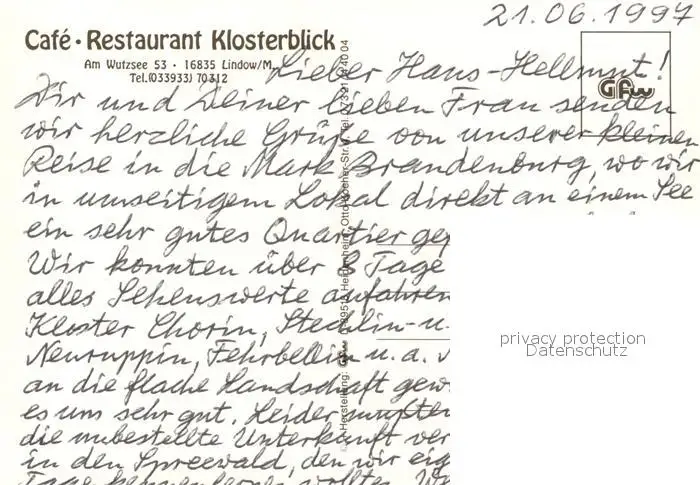 21.06.1997
Café · Restaurant Klosterblick
Am Wutzsee 53 · 16835 Lindow/M.
Tel.(033933) 70312
Lieber Hans-Hellmut!
Gfw
Dir und Deiner lieben Frau senden
wir herzliche Grüße von unserer kleinen
Reise in die Mark Brandenburg, wo wir
in umseitigem Lokal direkt an einem See
ein sehr gutes Quartier
Wir konnten über 3 Tage
alles Sehenswerte anfahren
Kloster Chorin, Stechlin- u.
Neuruppin, Fehrbellin u. a.
an die flache Landschaft
es uns sehr gut. Leider mußten
die unbestellte Unterkunft
in den Spreewald, den wir
Tage kennenlernen wollten.
Herstellung: Gfw 89514 Heidenheim, Otto-Kocher-Str.
privacy protection
Datenschutz